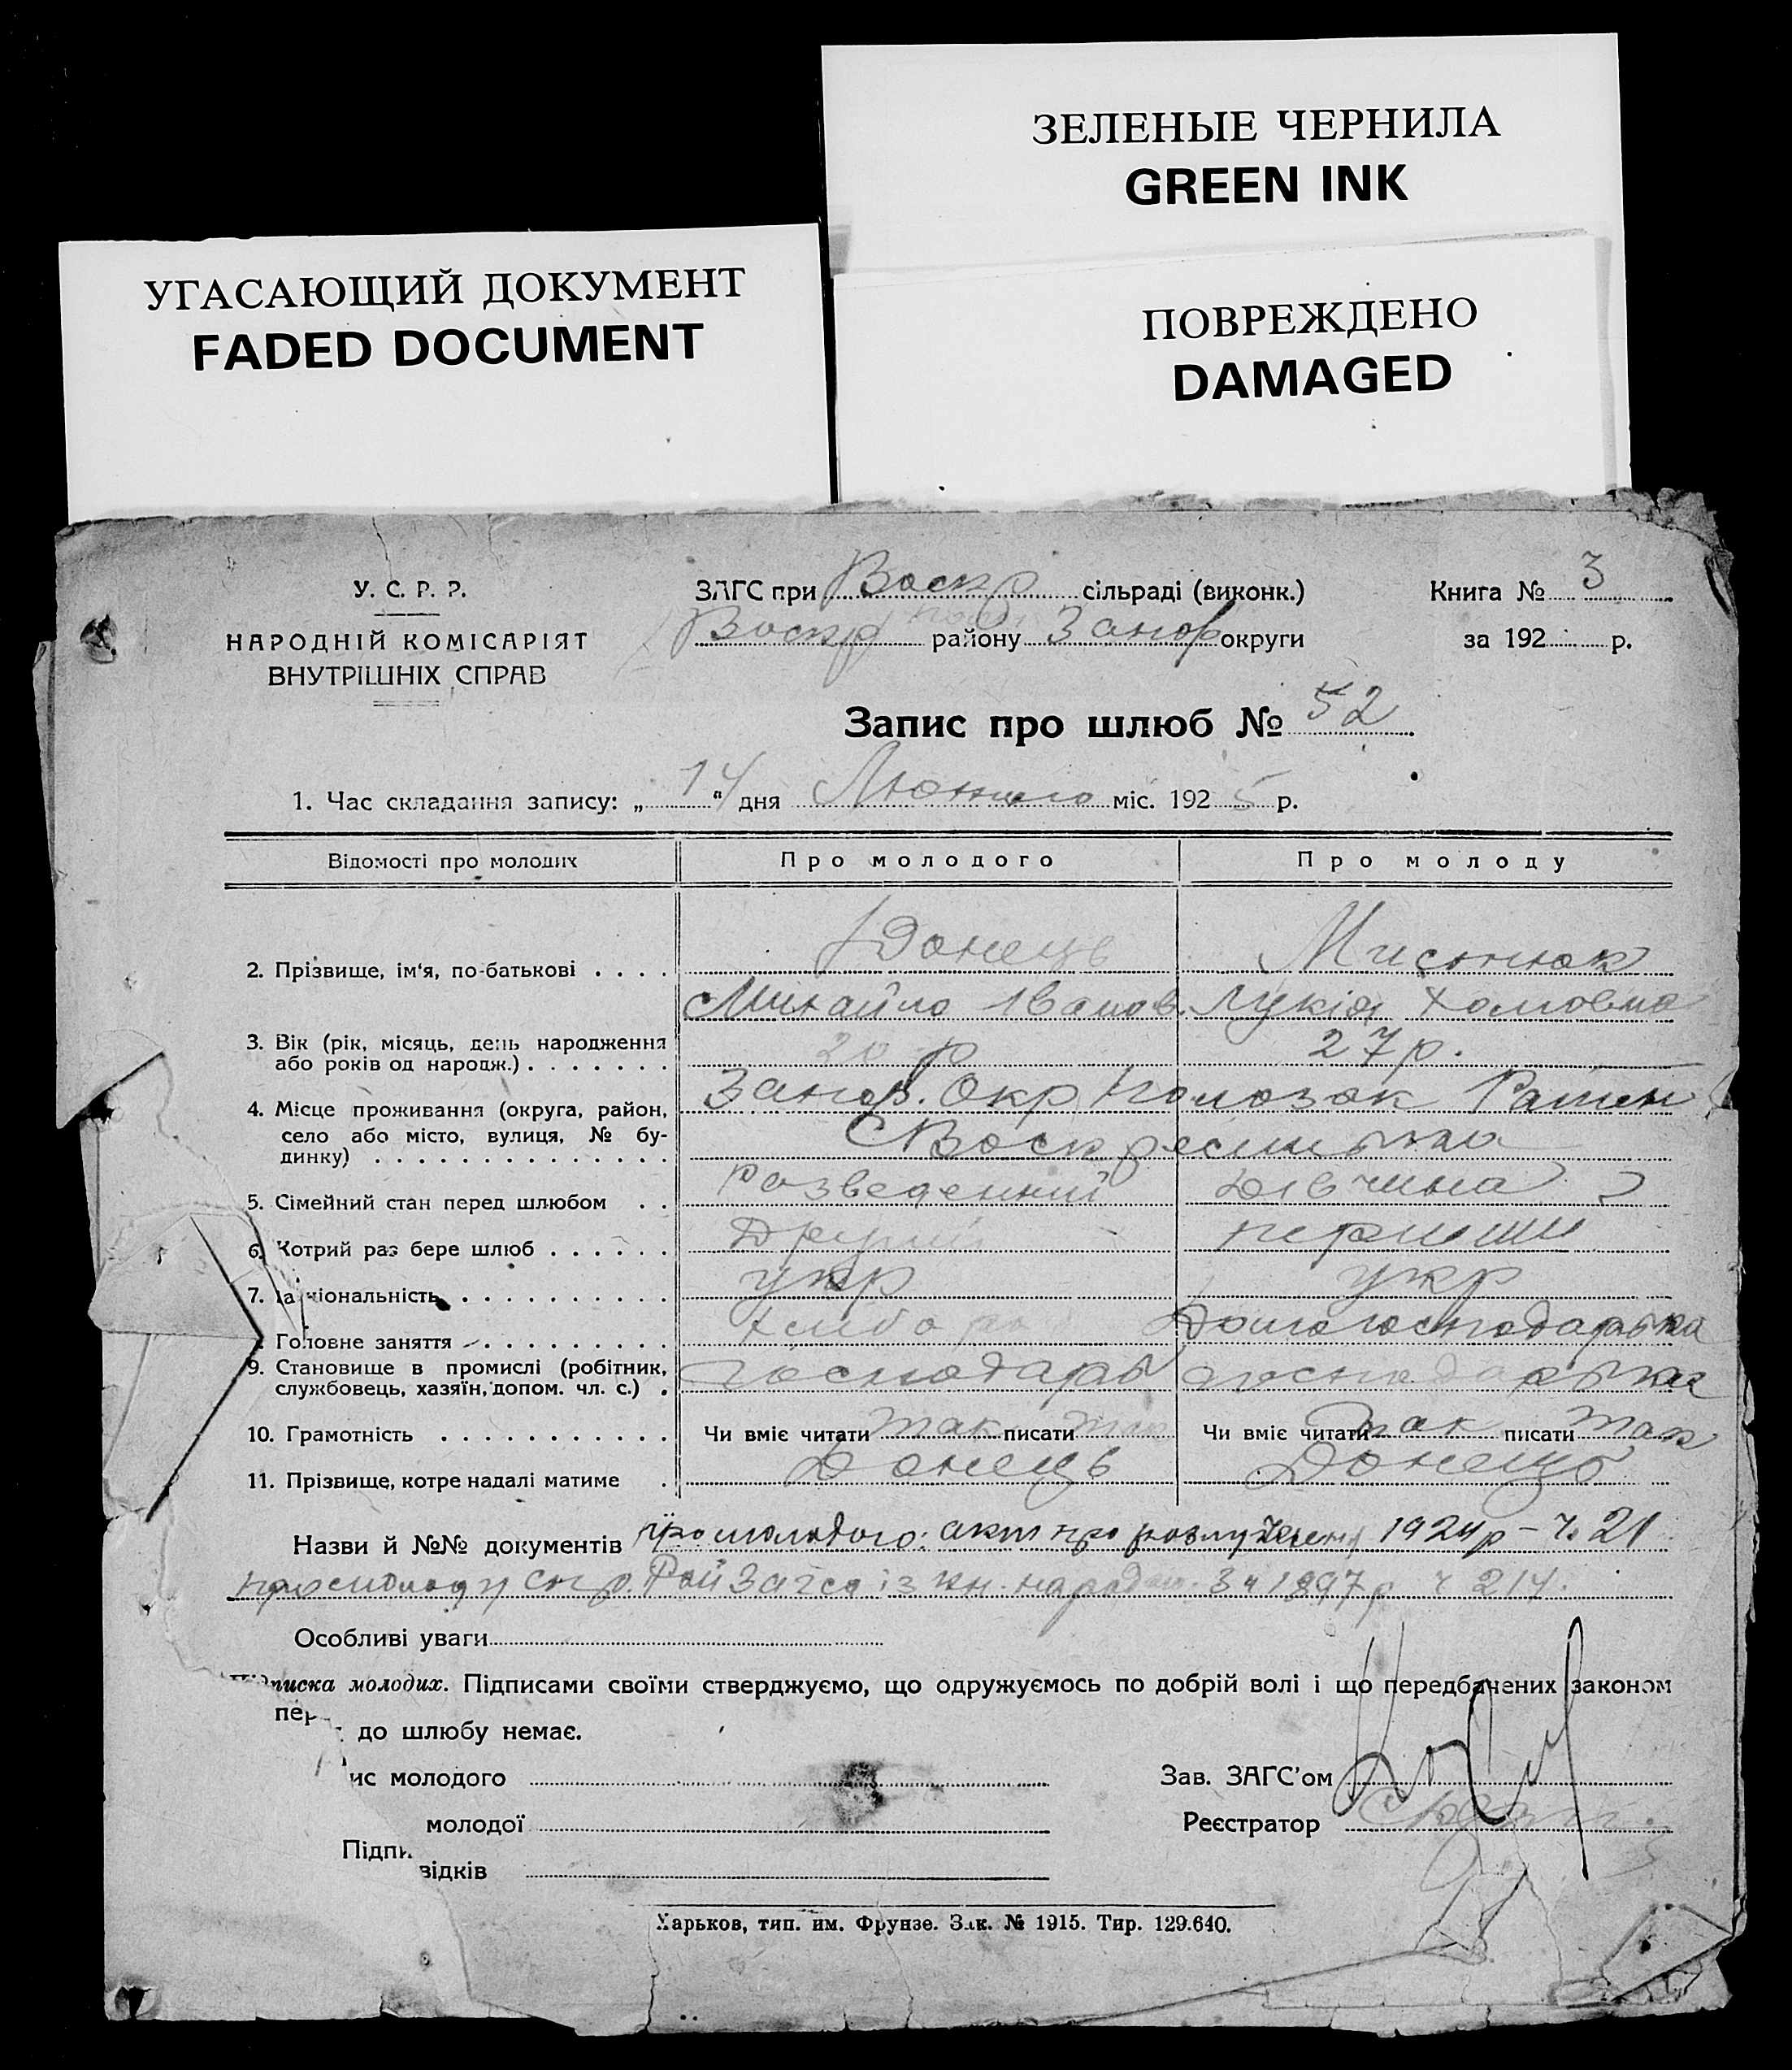 ЗЕЛЕНЫЕ ЧЕРНИЛА
GREEN INK
УГАСАЮЩИЙ ДОКУМЕНТ
FADED DOCUMENT
ПОВРЕЖДЕНО
DAMAGED
У. С. Р. Р.
НАРОДНІЙ КОМІСАРІЯТ
ВНУТРІШНІХ СПРАВ
ЗАГС при Воскр сільраді (виконк.)
Воскр району Запор округи
Книга № 3
за 192 р.
Запис про шлюб № 52
1. Час складання запису: „14" дня Лютого міс. 1925 р.
Відомості про молодих Про молодого Про молоду
2. Прізвище, ім'я, по-батькові . . . . Донець
Михайло Іванов. Хомовна
3. Вік (рік, місяць, день народження
або років од народж.) . . . . . . . 20 р 27 р.
4. Місце проживання (округа, район, Запор. Окр
село або місто, вулиця, № бу-
динку) . . . . . . . . . . . . . .
5. Сімейний стан перед шлюбом . . Разведенний Дівчина
6. Котрий раз бере шлюб . . . . . . Другий перший
7. аціональність . . . . . . . . . . укр укр
Головне заняття . . . . . . . . . Домогосподарька
9. Становище в промислі (робітник,
службовець, хазяїн, допом. чл. с.) . господарь господарька
10. Грамотність . . . . . . . . . . . Чи вміє читати так писати так Чи вміє читати так писати так
11. Прізвище, котре надалі матиме . Донець Донець
Назви й №№ документів про молодого: акт про 1924 р – ч. 21
Рай Загса із кн. народж. За 1897 р ч 214.
Особливі уваги
писка молодих. Підписами своїми стверджуємо, що одружуємось по добрій волі і що передбачених законом
пер
до шлюбу немає.
ис молодого
молодої
Підпи
відків
Зав. ЗАГС'ом
Реєстратор
Харьков, тип. им. Фрунзе. Зак. № 1915. Тир. 129.640.